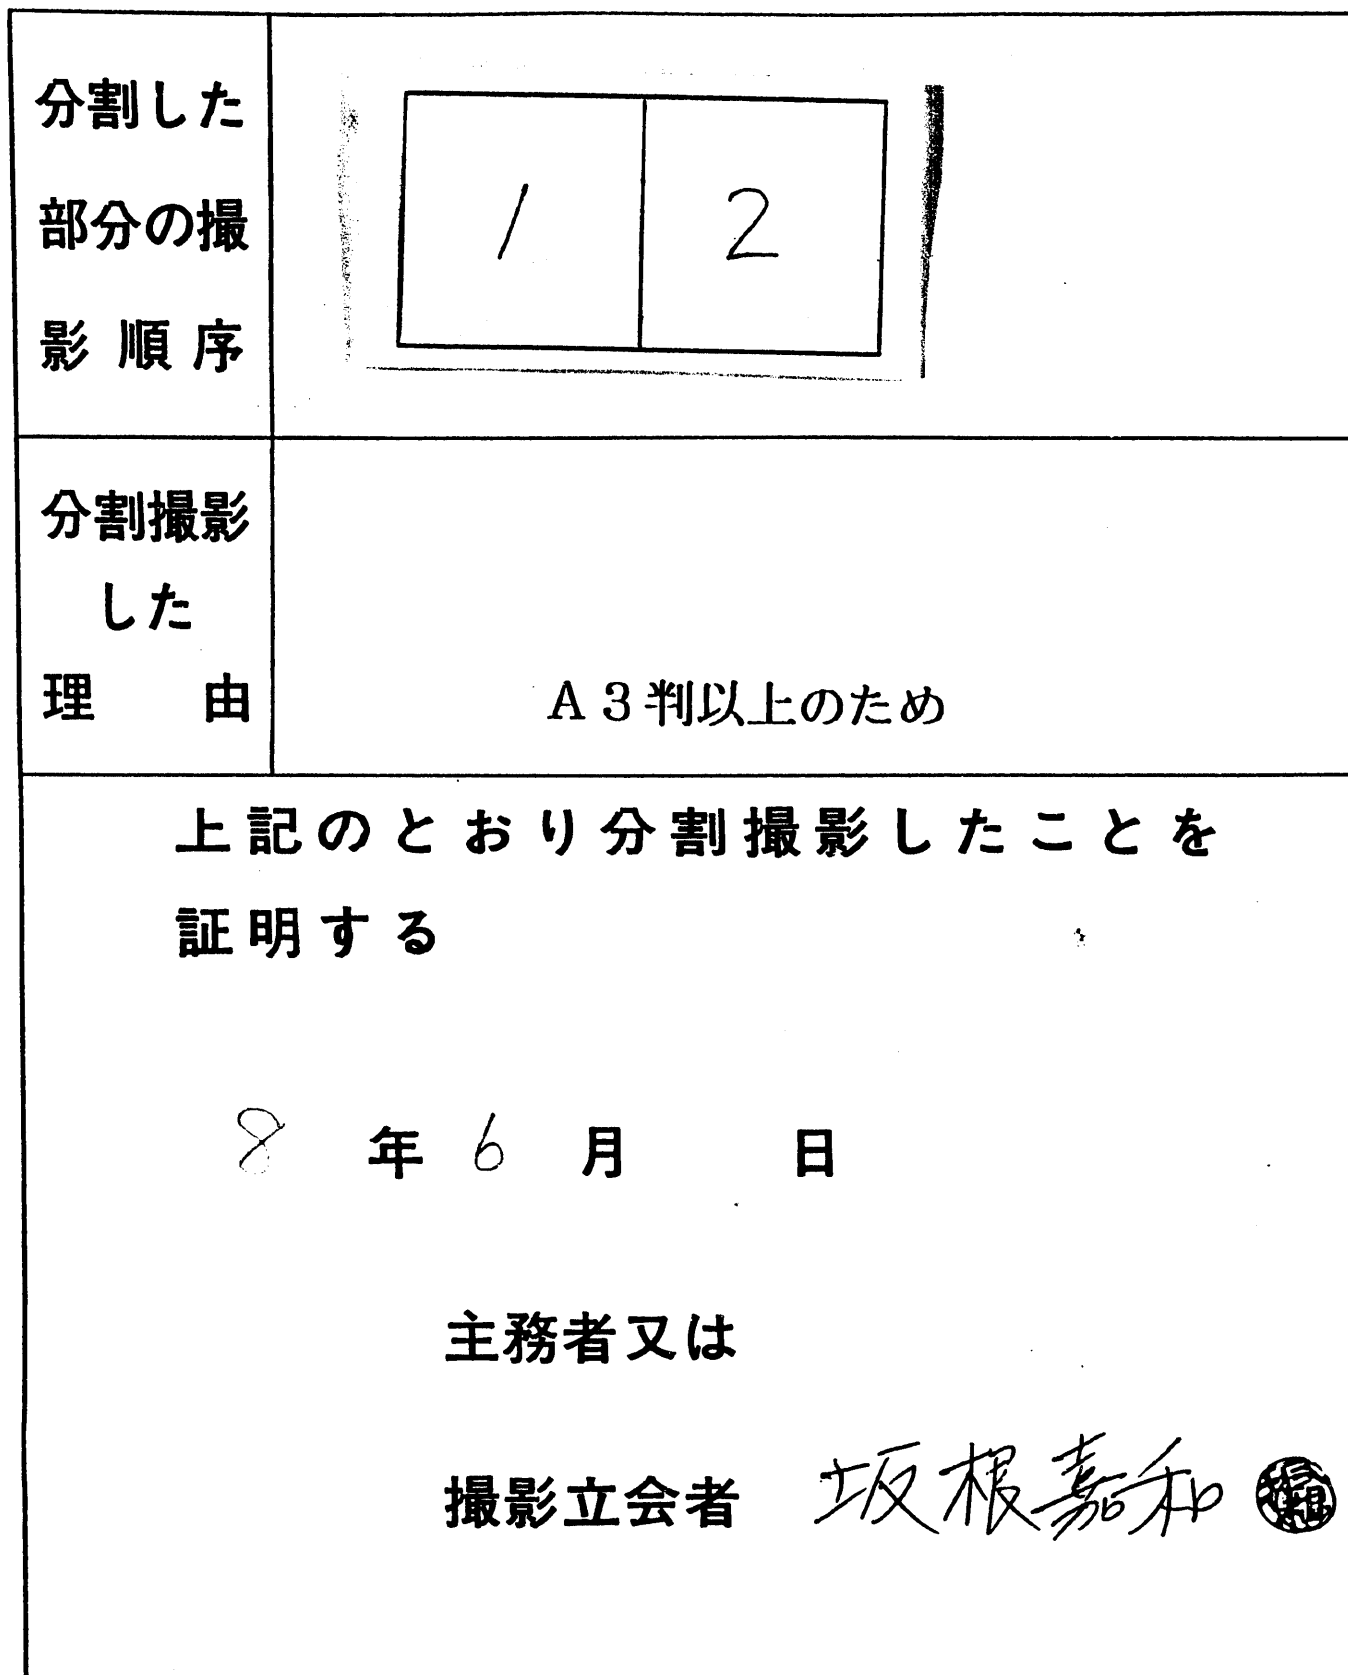 分割した
部分の撮
影順序
1 2
分割撮影
した
理由
A3判以上のため
上記のとおり分割撮影したことを
証明する
8年6月 日
主務者又は
撮影立会者 坂根嘉和